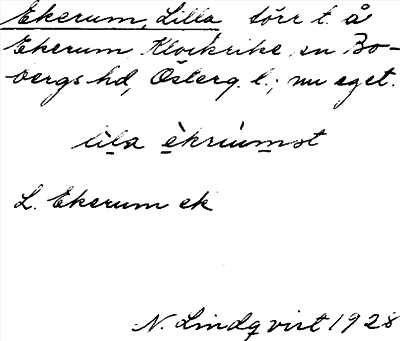 Ekerum, Lilla torr t. å
Ekerum Klockrike sn Bo-
bergs hd, Österg. l.; nu eget.
lìla èkriùmst
L. Ekerum ek
N. Lindqvist 1928